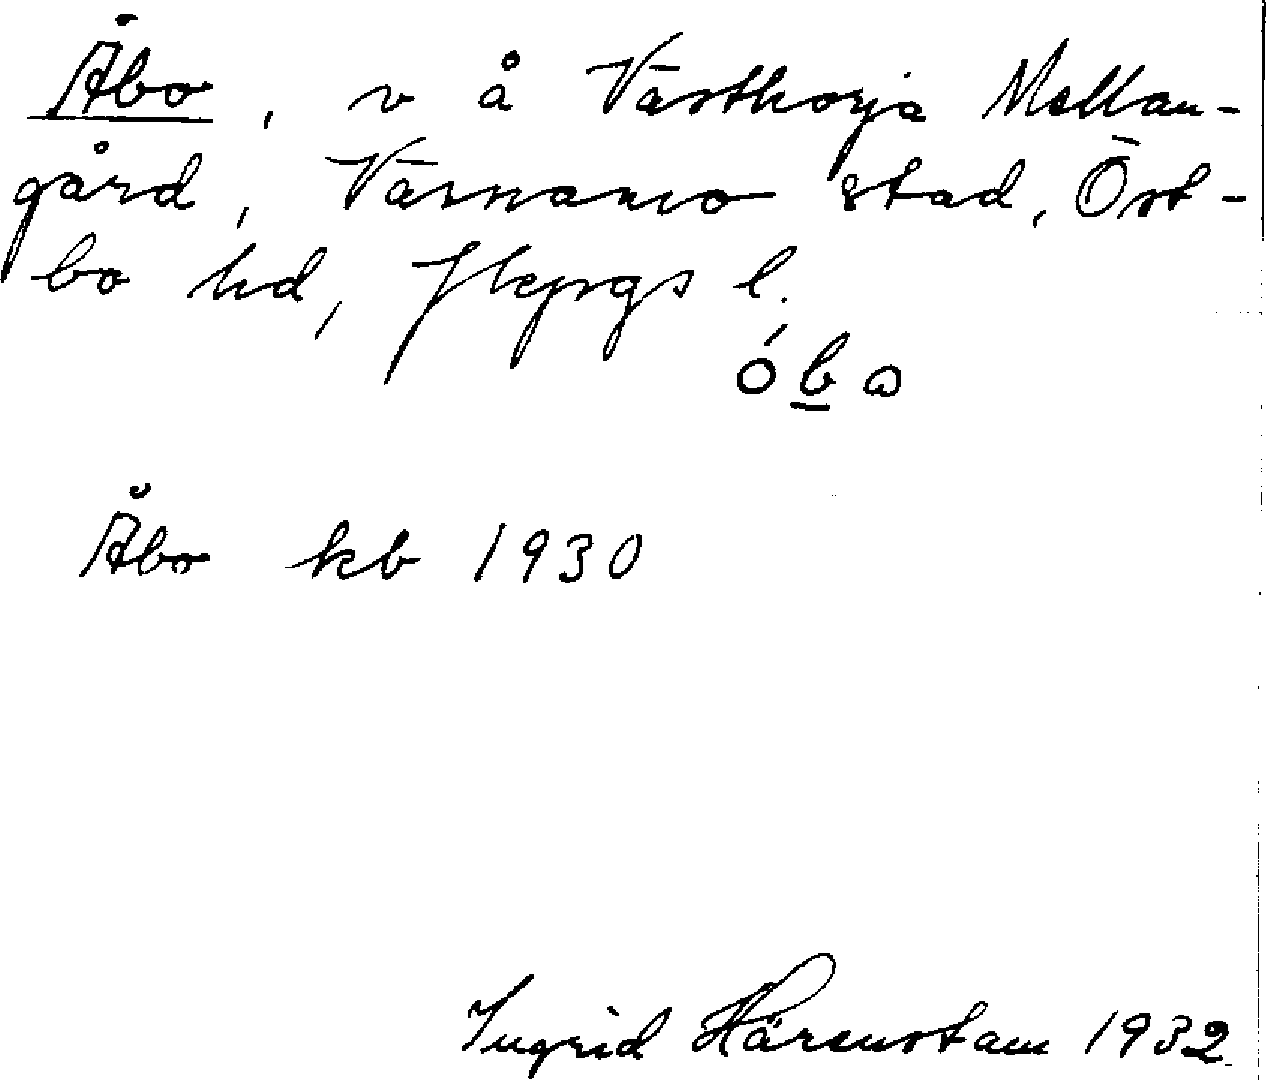 Åbo, v å Västhorja Mellan-
gård, Värnamo stad, Öst-
bo hd, Jkpgs l.
óba
Åbo kb 1930
Ingrid Härenstam 1932